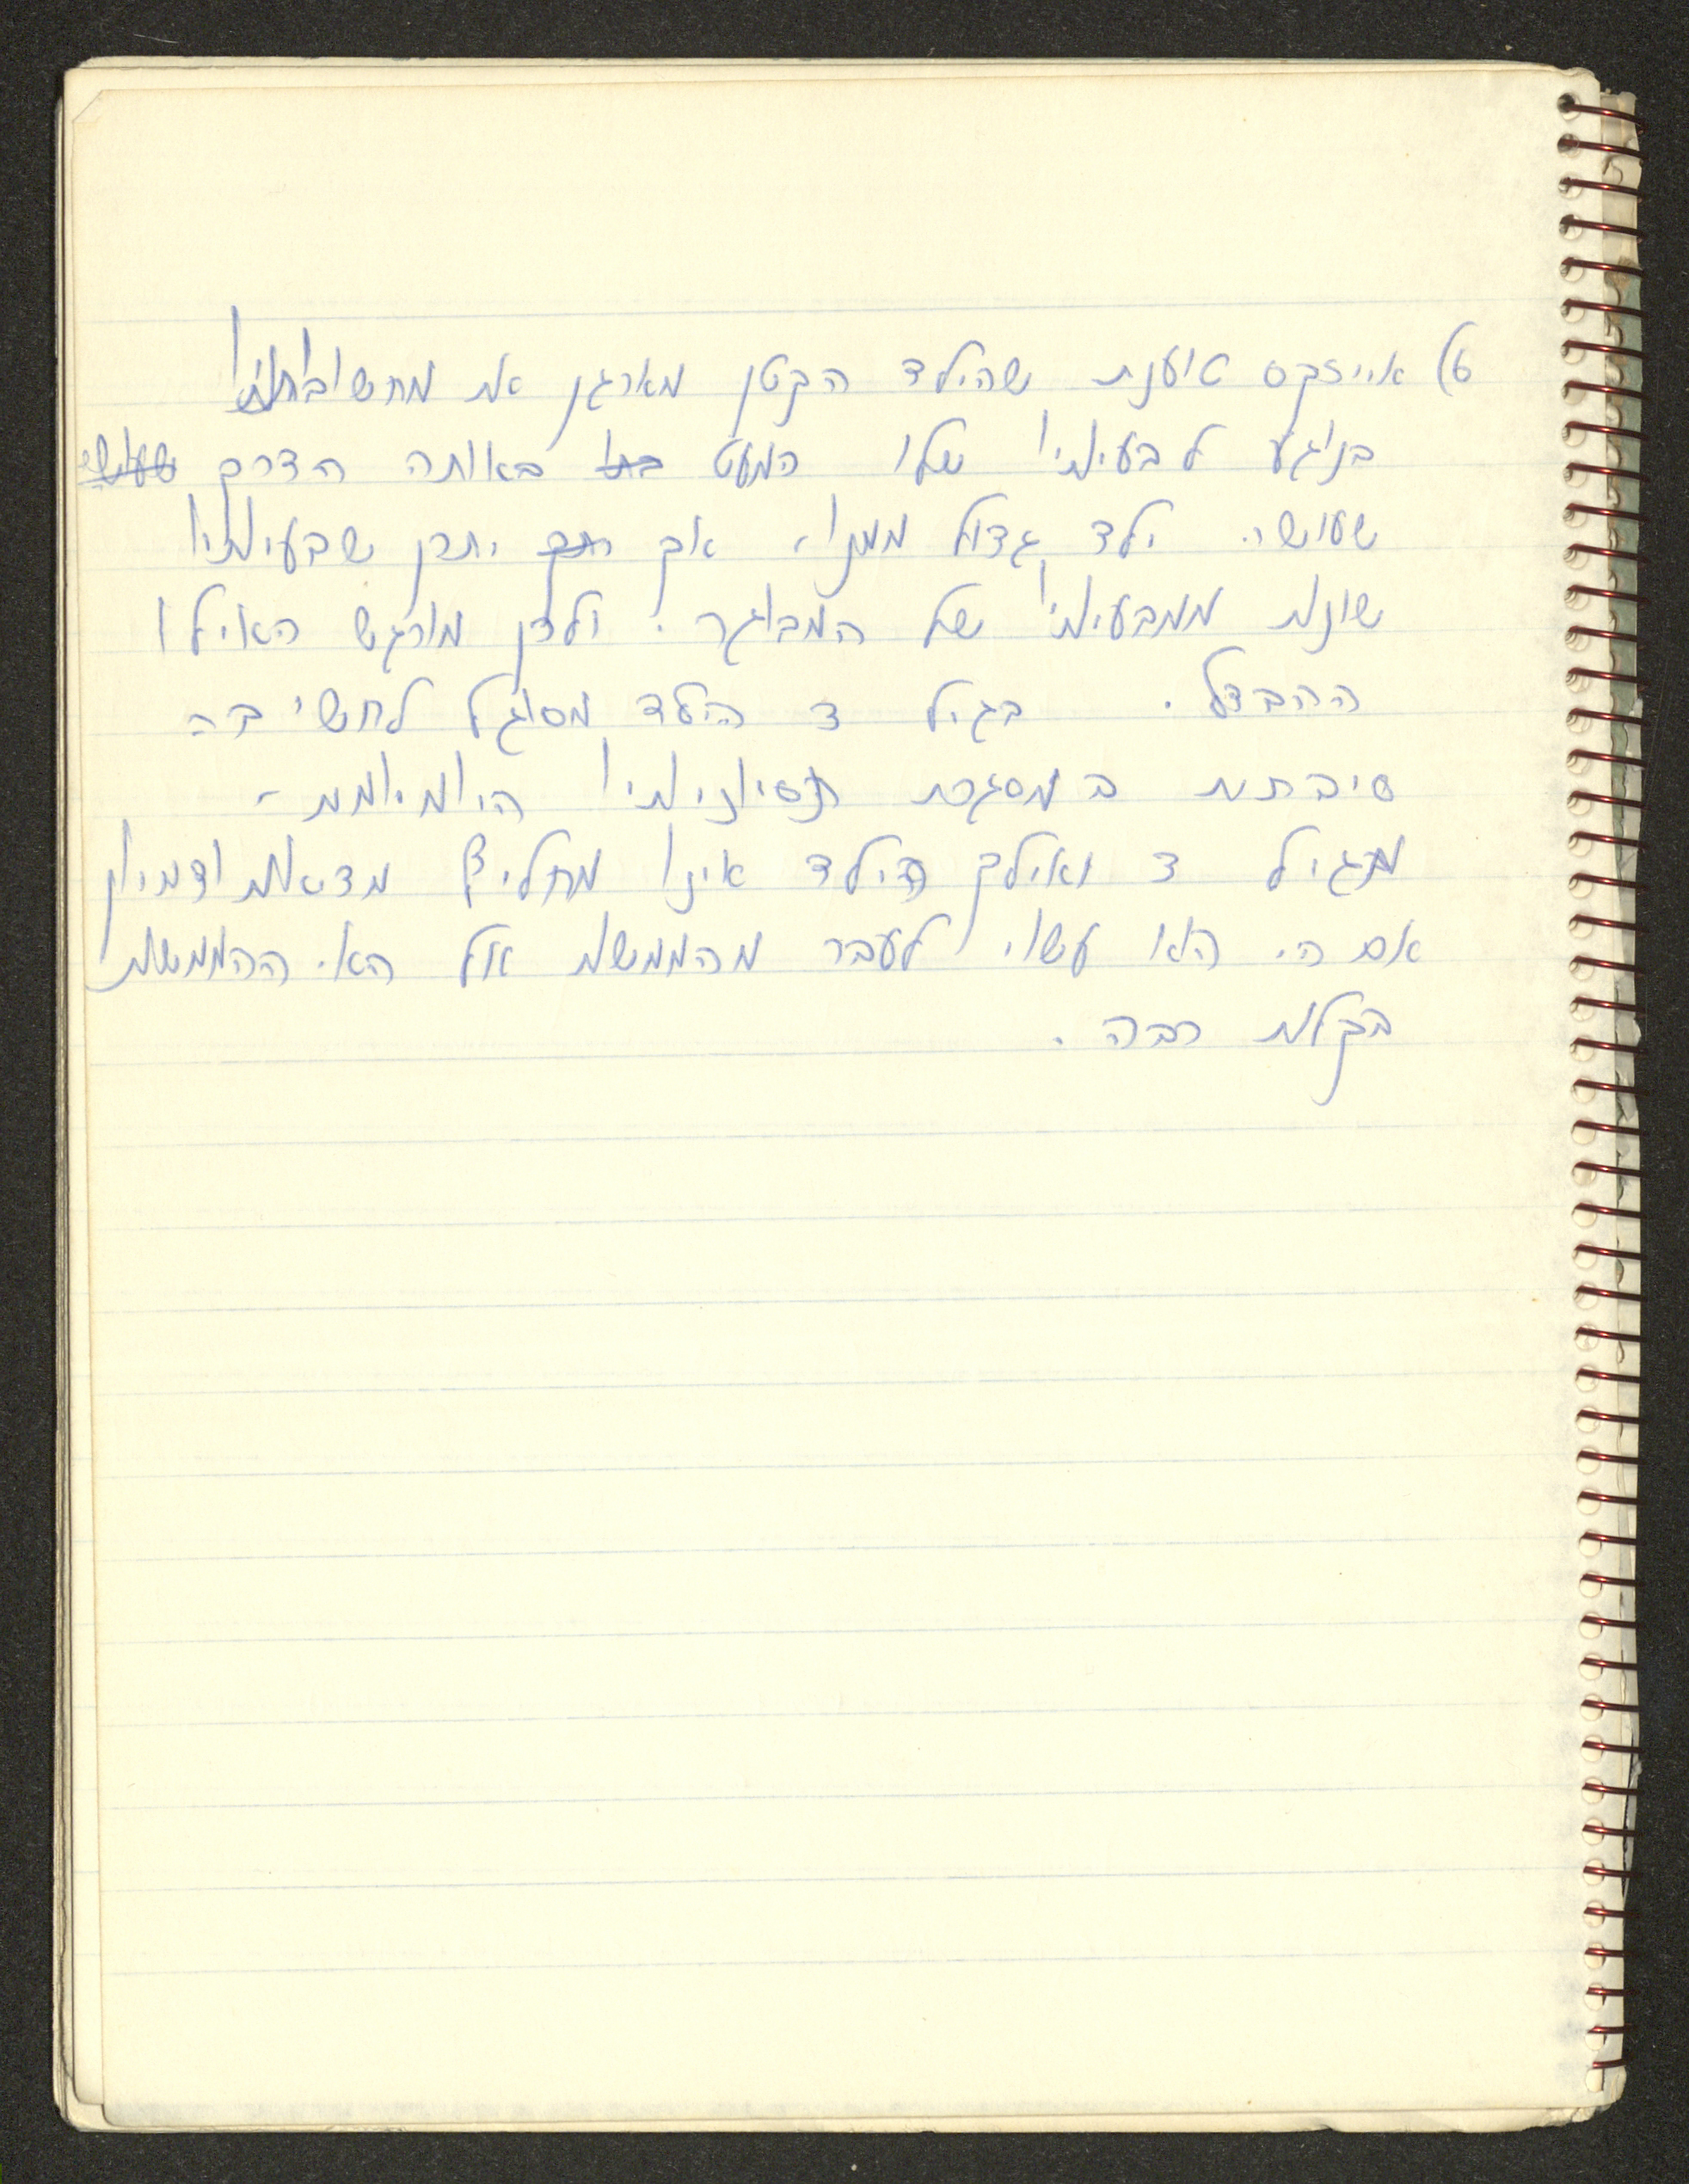 6) אייזקס טוענת שהילד הקטן מארגן את מחשבותיו
בנוגע לבעיותיו שלו כמעט באותה הדרך
שעושה ילד גדול ממנו, אך יתכן שבעיותיו
שונות ממבעיותיו של המבוגר. ולכן מורגש כאילו
ההבדל. בגיל 3 הילד מסוגל לחשיבה
סיבתית במסגרת נסיונותיו היומיומיות -
מגיל 3 ואילך הילד אינו מחליף מציאות ודמיון
אם כי הוא עשוי לעבור מהממשות אל האי הממשות
בקלות רבה.